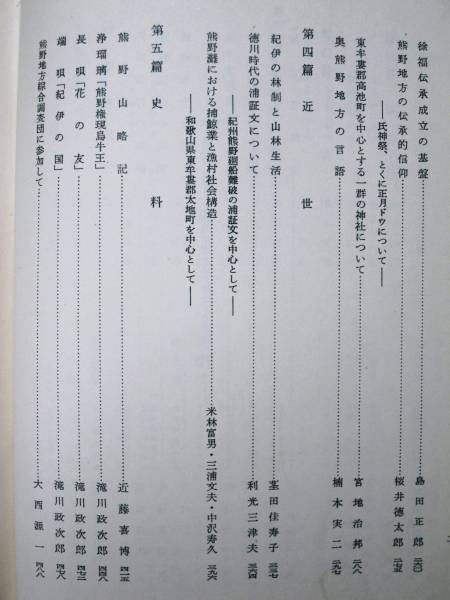 徐福伝承成立の基盤……島田正郎 二六〇
熊野地方の伝承的信仰……桜井徳太郎 二七五
――氏神祭、とくに正月ドウについて――
東牟婁郡高池町を中心とする一群の神社について……宮地治邦 二八八
奥熊野地方の言語……楠本実二 二九七
第四篇 近世
紀伊の林制と山林生活……茎田佳寿子 三三七
徳川時代の浦証文について……利光三津夫 三六四
――紀州熊野廻船難破の浦証文を中心として――
熊野灘における捕鯨業と漁村社会構造……米林富男・三浦文夫・中沢寿久 三九六
――和歌山県東牟婁郡太地町を中心として――
第五篇 史料
熊野山略記……近藤喜博 四二五
浄瑠璃「熊野権現烏牛王」……滝川政次郎 四四八
長唄「花の友」……滝川政次郎 四七三
端唄「紀伊の国」……滝川政次郎 四七八
熊野地方綜合調査団に参加して……大西源一 四八八